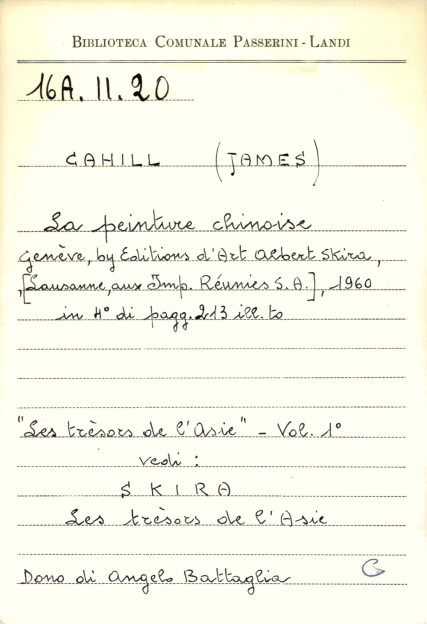 BIBLIOTECA COMUNALE PASSERINI - LANDI
16A. II. 20
CAHILL (JAMES)
La peinture chinoise
Genève, by Editions d'Art Albert Skira,
,[Lausanne, aux Imp. Réunies S. A.], 1960
in 4° di pagg. 213 ill. to
"Les trèsors de l'Asie" - Vol. 1°
vedi :
SKIRA
Les trèsors de l'Asie
Dono di Angelo Battaglia